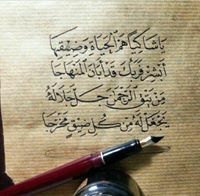 يَا شَاكِيًا هَمَّ الْحَيَاةِ وَضِيْقَهَا
أَبْشِرْ فَرَبُّكَ قَدْ أَبَانَ الْمَنْهَاجَا
مَنْ يَتَّقِ الرَّحْمَنَ جَلَّ جَلَالُهُ
يَجْعَلْ لَهُ مِنْ كُلِّ ضِيْقٍ مَخْرَجَا